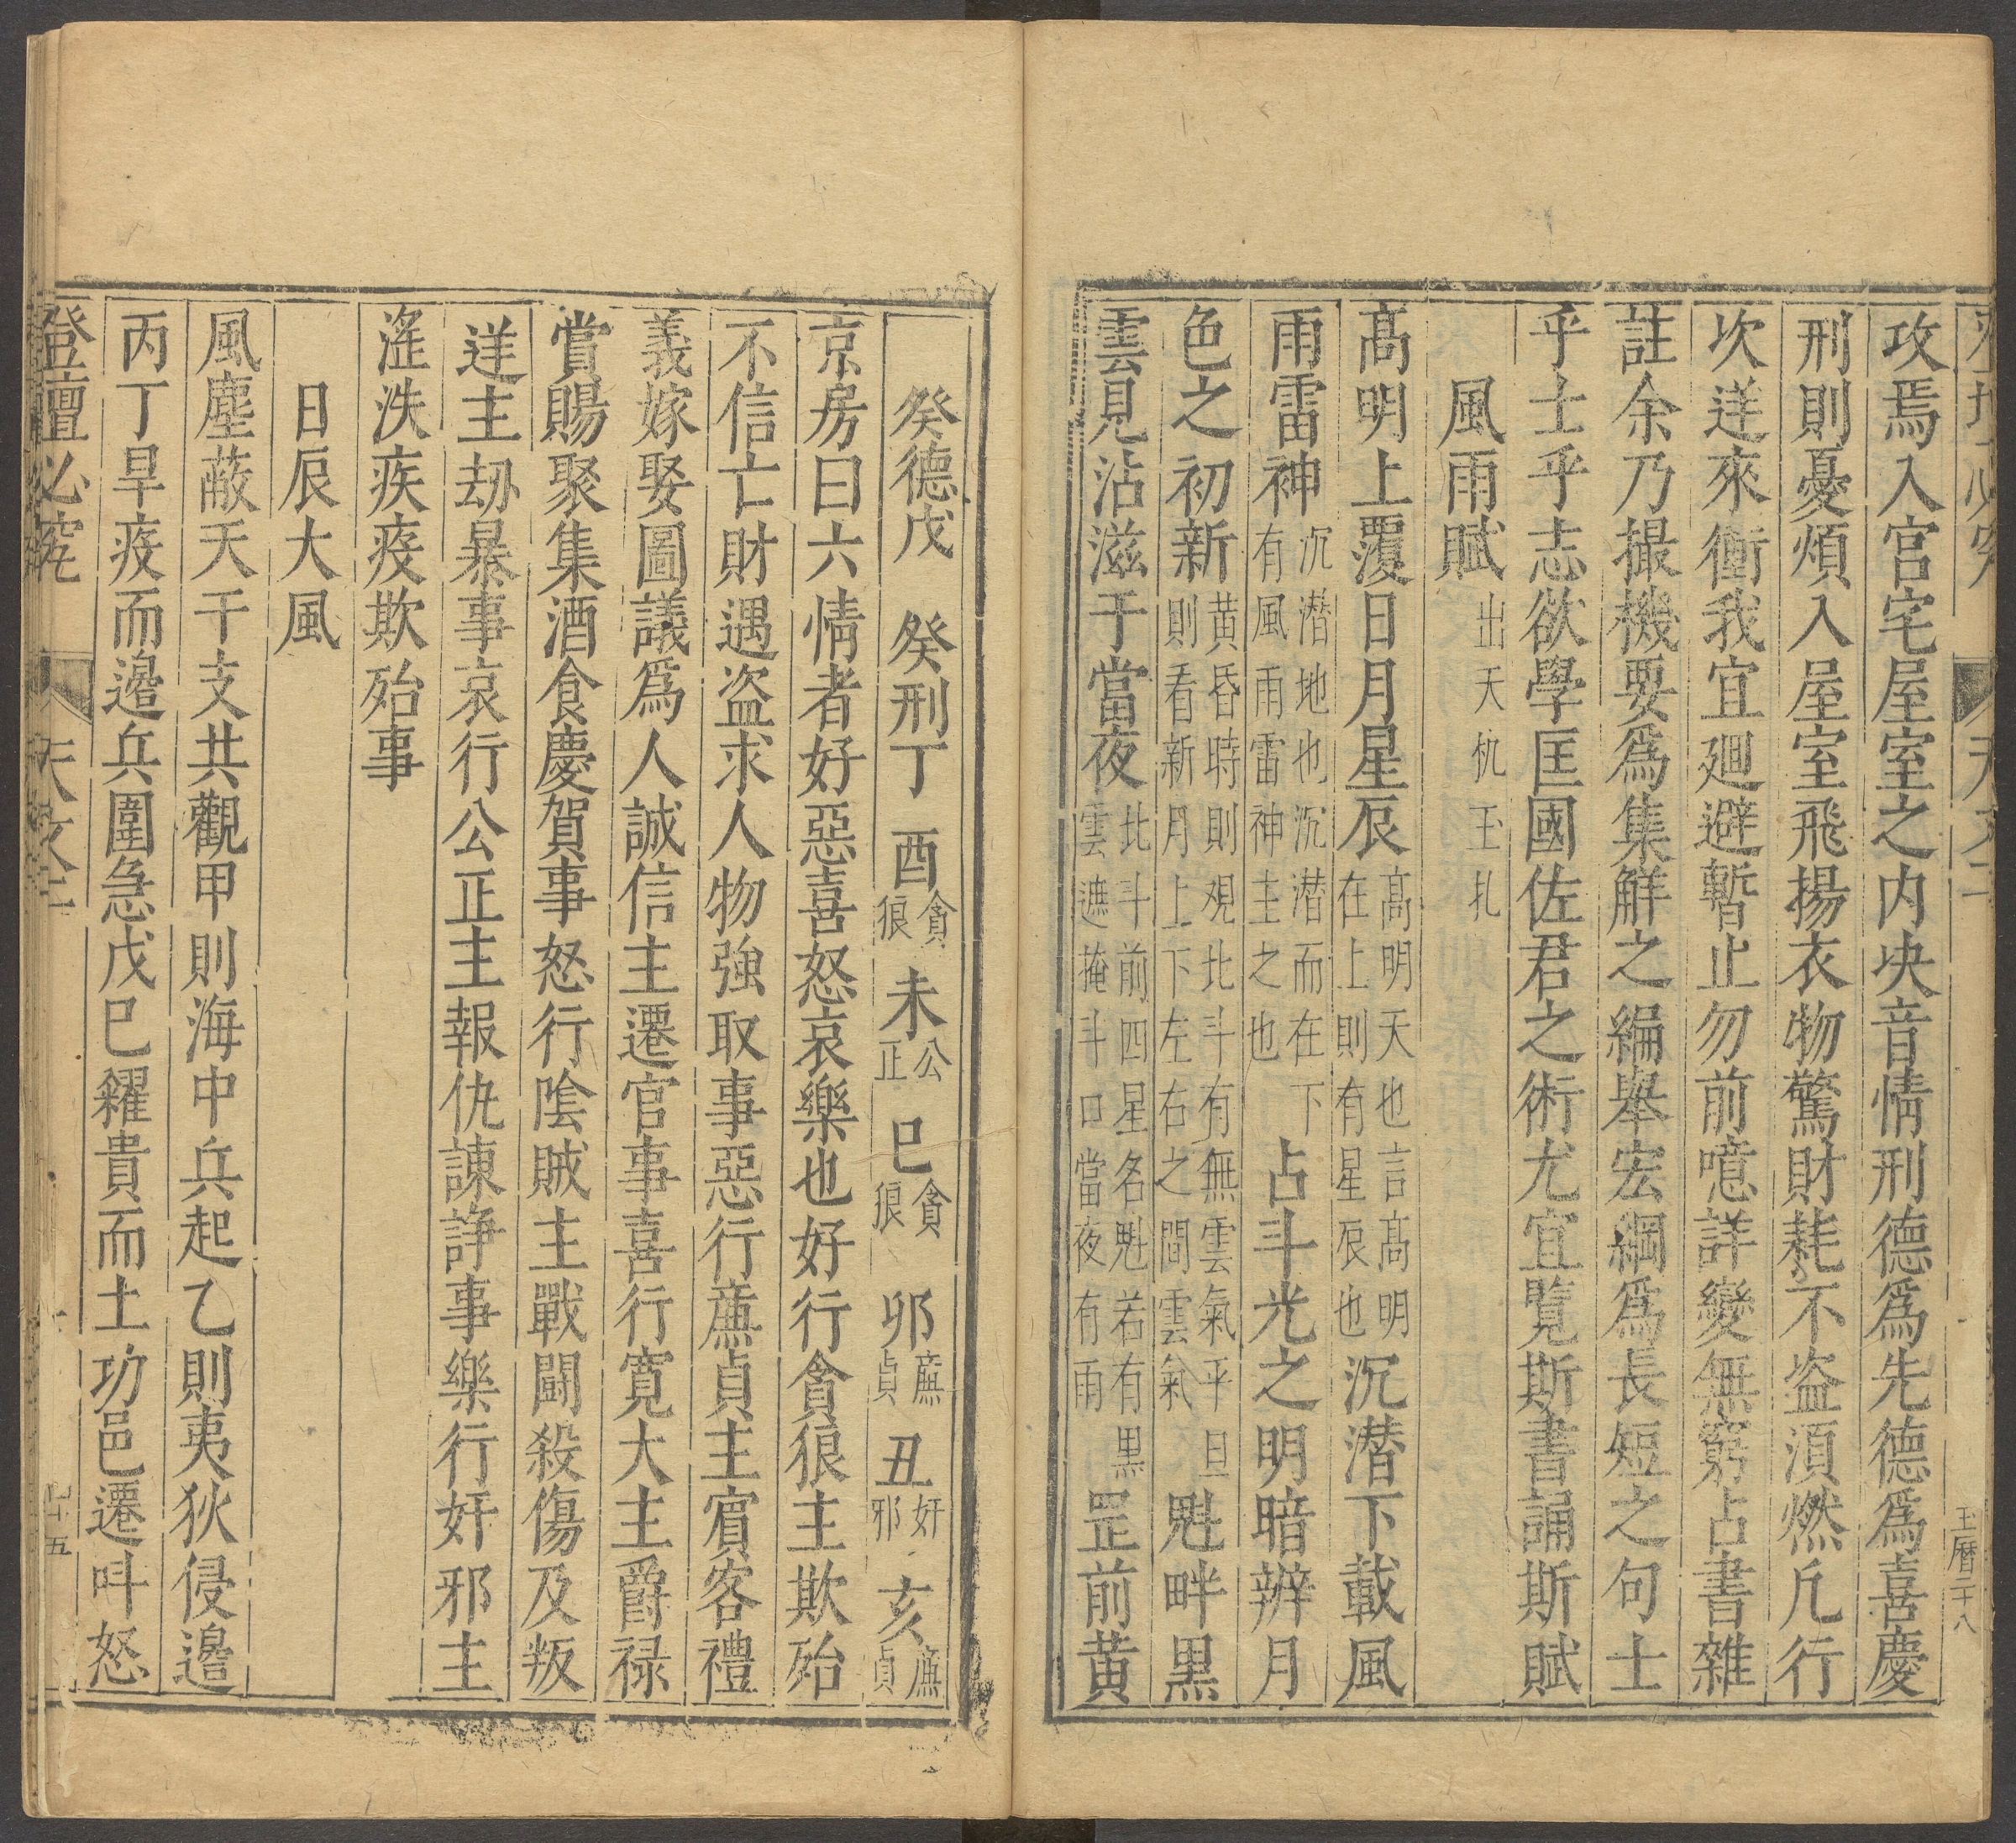 天文二 玉曆二十八
攻焉入宮宅屋室之内决音情刑德爲先德爲喜慶
刑則憂煩入屋室飛揚衣物驚財耗不盗湏燃凢行
坎逆來衝我宜廻避暫止勿前噫詳變無窮占書雜
註余乃撮機要爲集觧之編舉宏綱爲長短之句士
乎士乎志欲學匡國佐君之術尤宜覽斯書誦斯賦
風雨賦 出天机玉扎
髙明上覆日月星辰 髙明天也言髙明在上則有星辰也 沉潜下載風
雨雷神 沉潜地也沉潜而在下有風雨雷神主之也 占斗光之明暗辨月
色之初新 黄昏時則覌北斗有無雲氣平旦則看新月上下左右之間雲氣 魁畔黒
雲見沾滋于當夜 北斗前四星名魁若有黒雲遮掩斗口當夜有雨 罡前黄
癸德戊 癸刑丁 酉貪狼 未公正 巳貪狼 卯廉貞 丑奸邪 亥廉貞
京房曰六情者好惡喜怒哀樂也好行貪狼主欺殆
不信亡財遇盗求人物強取事惡行廉貞主賓客禮
義嫁娶圖議爲人誠信主遷官事喜行寬大主爵禄
賞賜聚集酒食慶賀事怒行隂賊主戰闘殺傷及叛
逆主刼暴事哀行公正主報仇諫諍事樂行奸邪主
滛泆疾疫欺殆事
日辰大風
風塵蔽天干支共觀甲則海中兵起乙則夷狄侵邉
丙丁旱疫而邉兵圍急戊巳糴貴而土功邑遷呌怒
登壇必究 天文二 十五